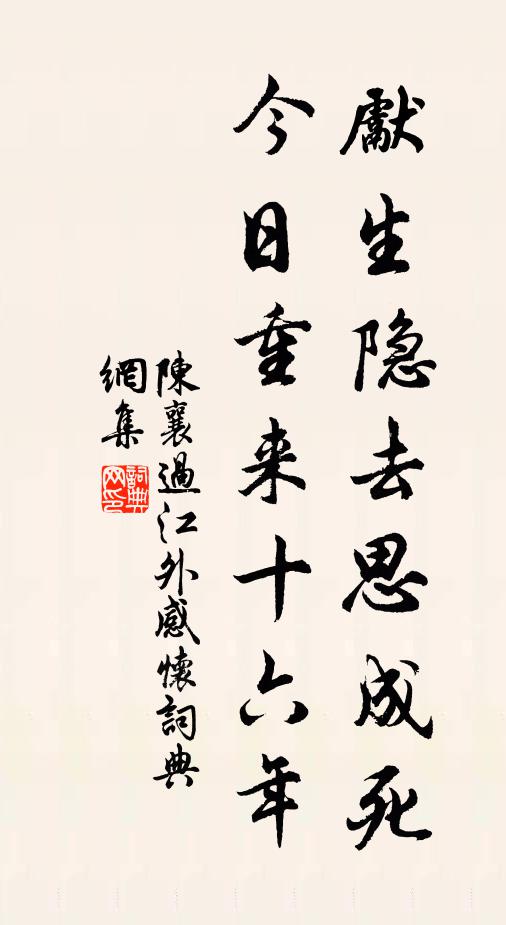 獻生隐去思成死
今日重来十六年
陳襄過江外感懷詞典
網集
詞典网印